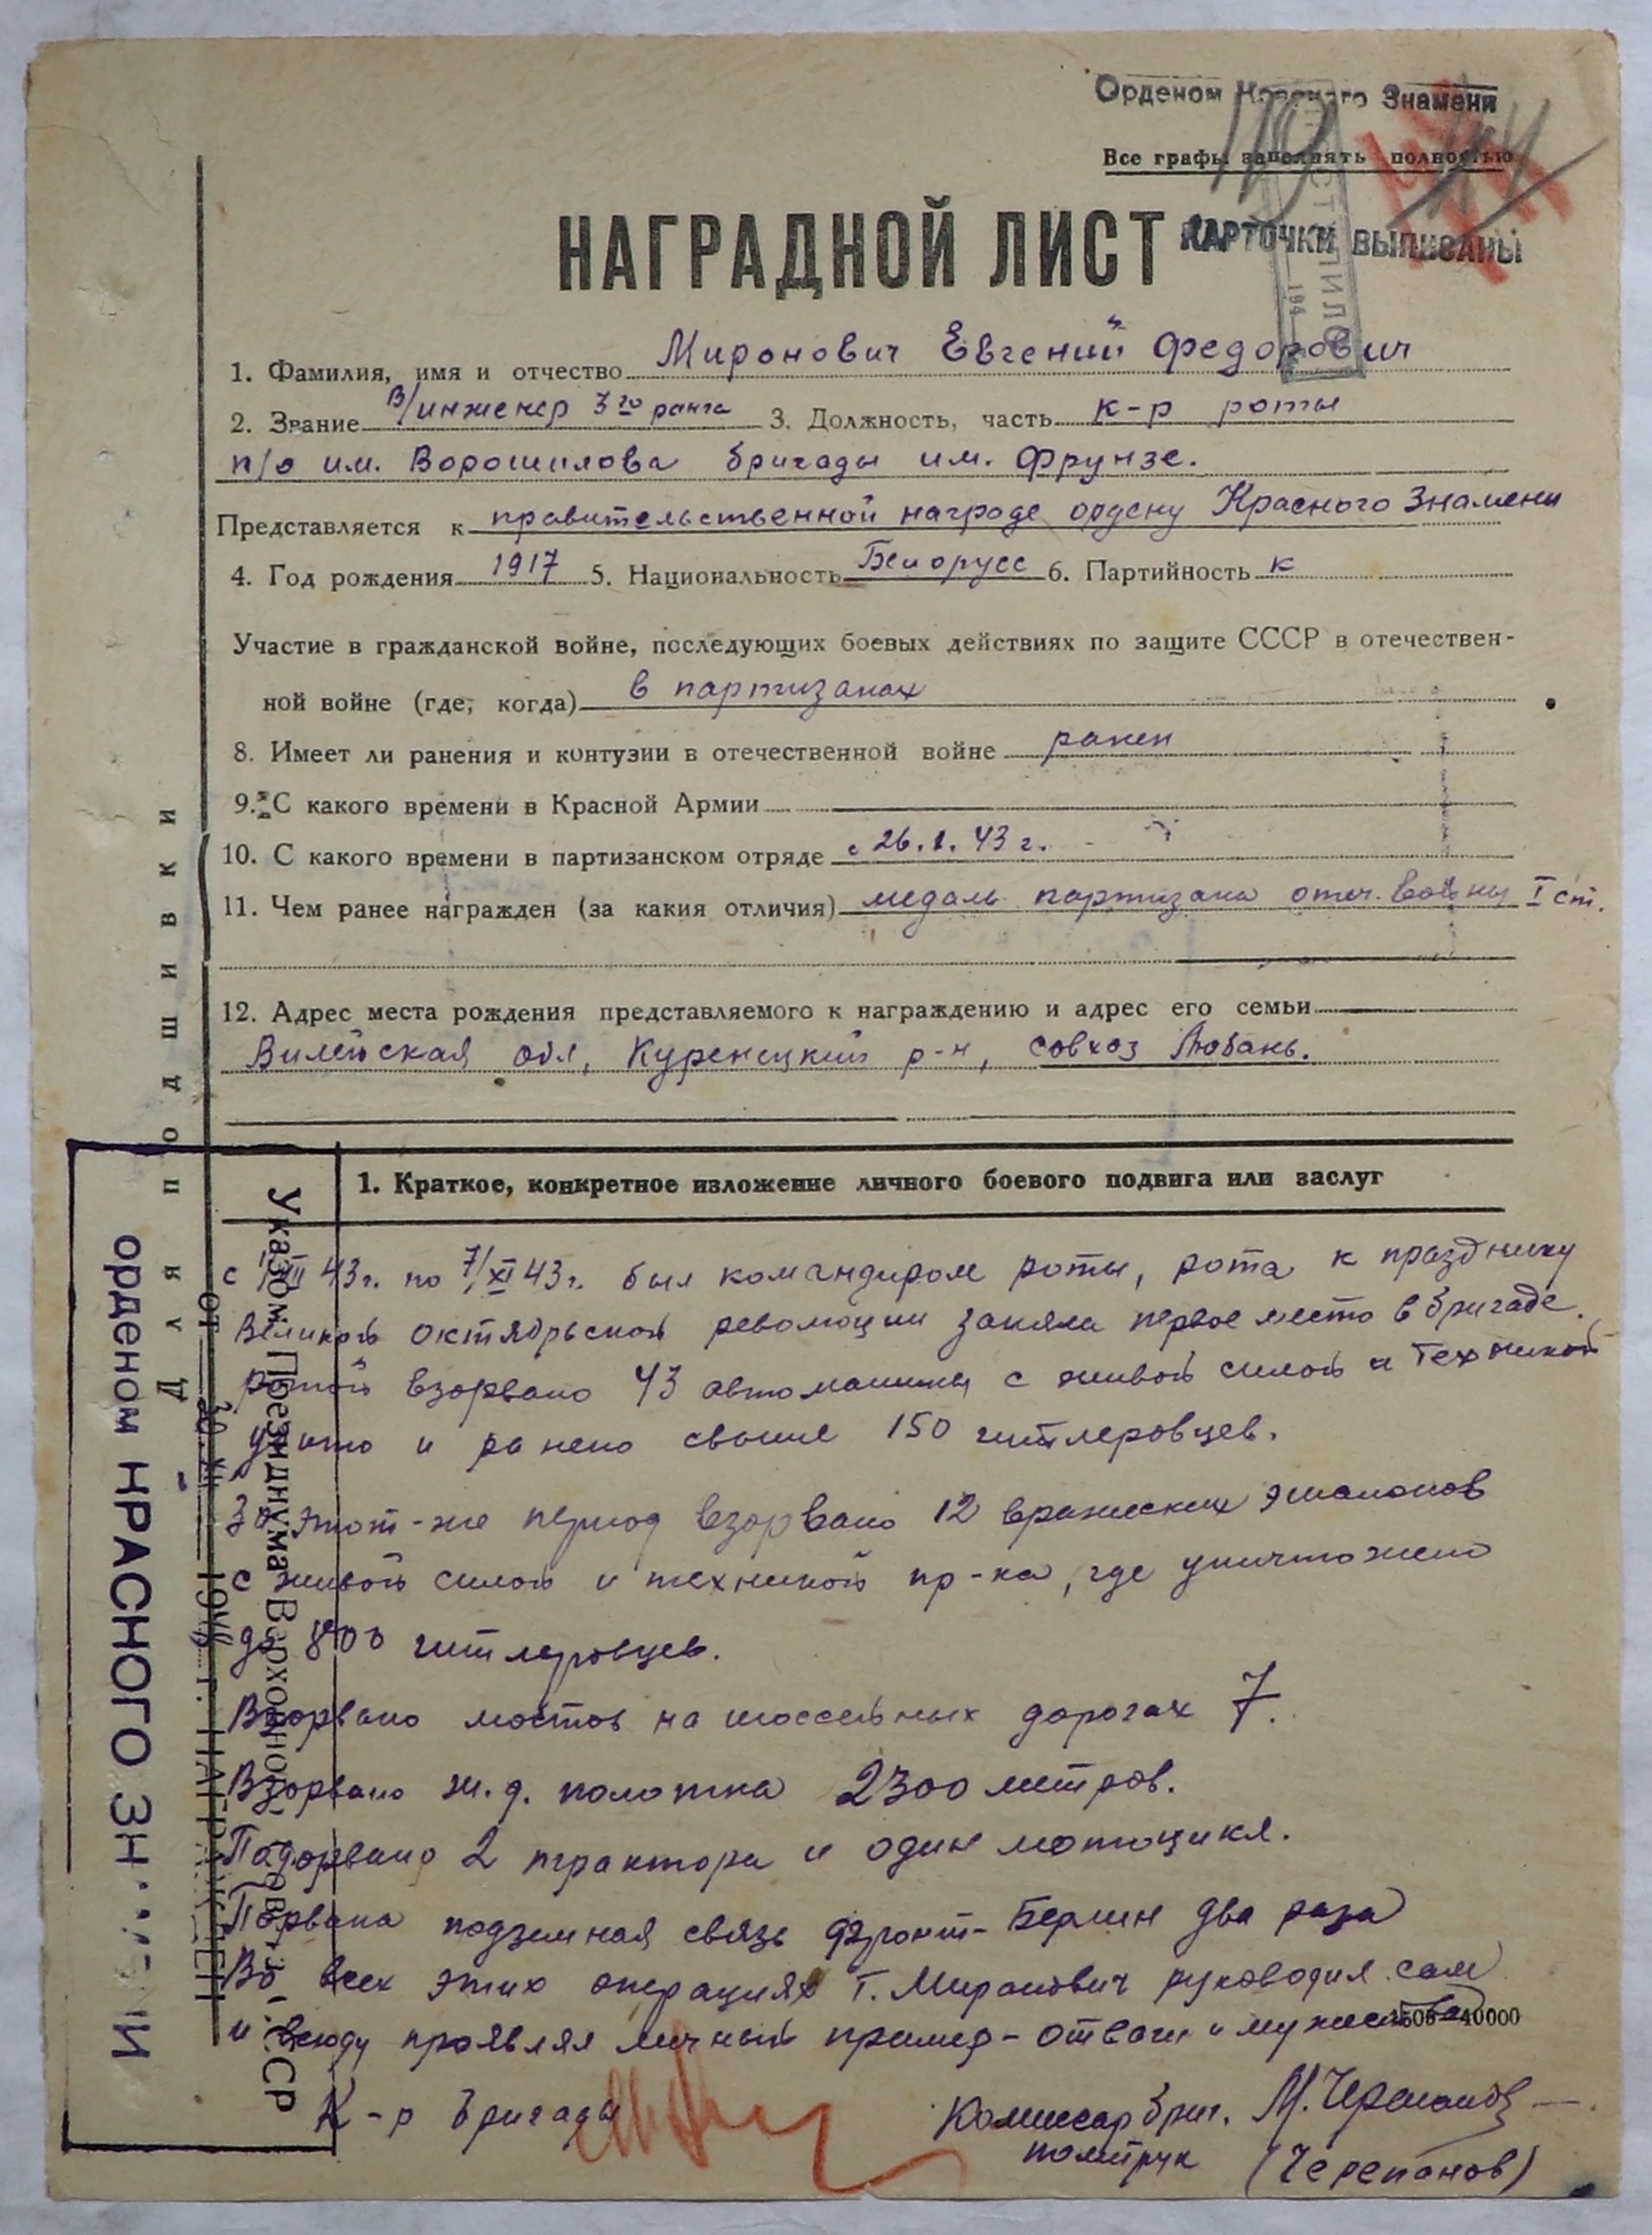 Орденом Красного Знамени
Все графы заполнять полностью
КАРТОЧКИ ВЫПИСАНЫ
НАГРАДНОЙ ЛИСТ
1. Фамилия, имя и отчество Миронович Евгений Федорович
2. Звание в/инженер 3го ранга 3. Должность, часть к-р роты
п/о им. Ворошилова бригады им. Фрунзе.
Представляется к правительственной награде ордену Красного Знамени
4. Год рождения 1917 5. Национальность Белорусс 6. Партийность к
Участие в гражданской войне, последующих боевых действиях по защите СССР в отечествен-
ной войне (где, когда) в партизанах
8. Имеет ли ранения и контузии в отечественной войне ранен
9. С какого времени в Красной Армии
10. С какого времени в партизанском отряде с 26.1.43 г.
11. Чем ранее награжден (за какия отличия) медаль партизана отеч. войны I ст.
12. Адрес места рождения представляемого к награждению и адрес его семьи
Вилейская обл, Куренецкий р-н, совхоз Любань.
1. Краткое, конкретное изложение личного боевого подвига или заслуг
с 43г. по 7/XI 43г. был командиром роты, рота к празднику
Великой октябрьской революции заняла первое место в бригаде.
ротой взорвано 43 автомашины с живой силой и техникой
убито и ранено свыше 150 гитлеровцев.
За этот-же период взорвано 12 вражеских эшалонов
с живой силой и техникой пр-ка, где уничтожено
до 800 гитлеровцев.
Взорвано мостов на шоссейных дорогах 7.
Взорвано ж.д. полотна 2300 метров.
Подорвано 2 трактора и один мотоцикл.
Порвана подземная связь фронт-Берлин два раза
Во всех этих операциях т. Миронович руководил сам
и всюду проявлял личный пример - отваги и мужества
40000
К-р бригады
Комиссар бриг. М. Черепанов
политрук (Черепанов)
Для подшивки
Указом Президиума Верховного Совета СССР
от 30.XII 194 г. НАГРАЖДЕН
орденом КРАСНОГО ЗНАМЕНИ